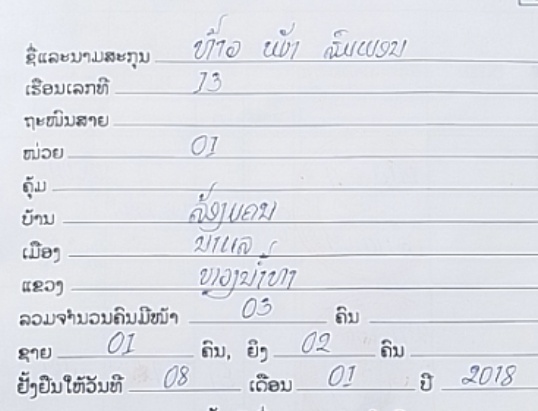 ຊື່ແລະນາມສະກຸນ ທ້າວ ຫງ້າ
ເຮືອນເລກທີ 13
ຖະໜົນສາຍ
ໜ່ວຍ 01
ຄຸ້ມ
ບ້ານ
ເມືອງ ນາແລ
ແຂວງ ຫຼວງນໍ້າທາ
ລວມຈຳນວນຄົນມີໜ້າ 03 ຄົນ
ຊາຍ 01 ຄົນ, ຍິງ 02 ຄົນ
ຢັ້ງຢືນໃຫ້ວັນທີ 08 ເດືອນ 01 ປີ 2018